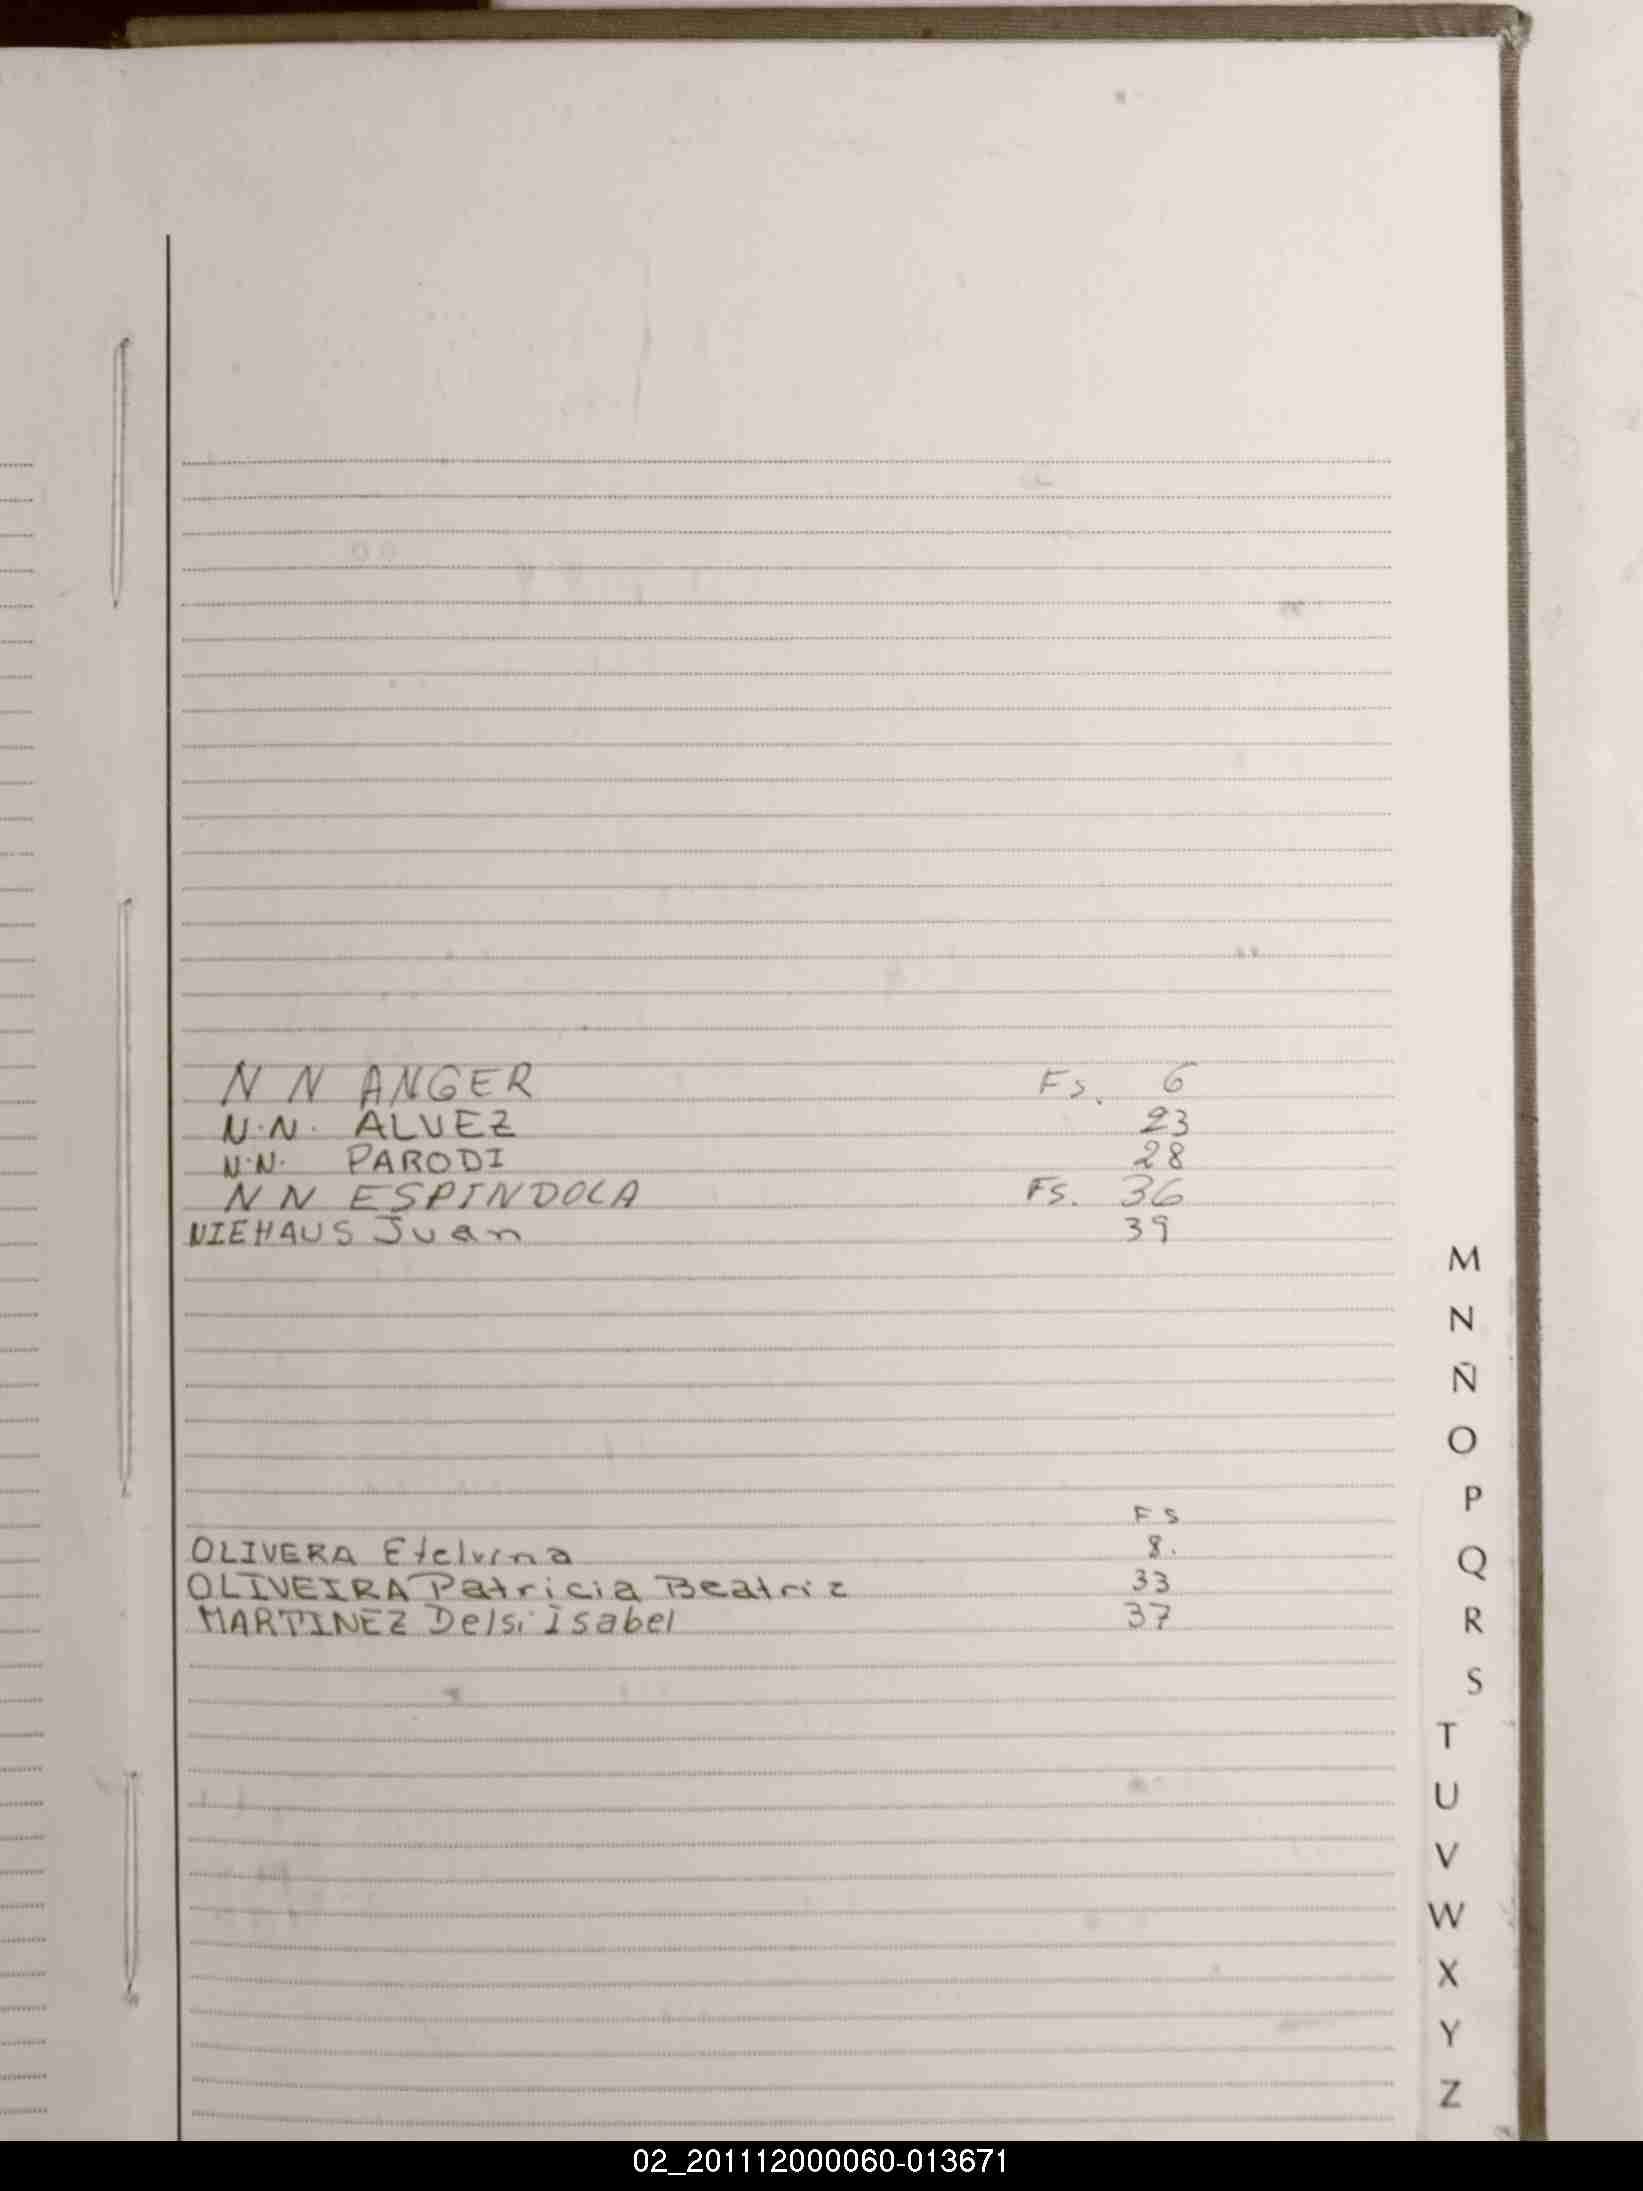 N N ANGER Fs. 6
N.N. ALVEZ 23
N.N. PARODI 28
N N ESPINDOLA Fs. 36
NIEHAUS Juan 39
FS
OLIVERA Etelvina 8.
OLIVEIRA Patricia Beatriz 33
MARTINEZ Delsi Isabel 37
M
N
Ñ
O
P
Q
R
S
T
U
V
W
X
Y
Z
02_201112000060-013671